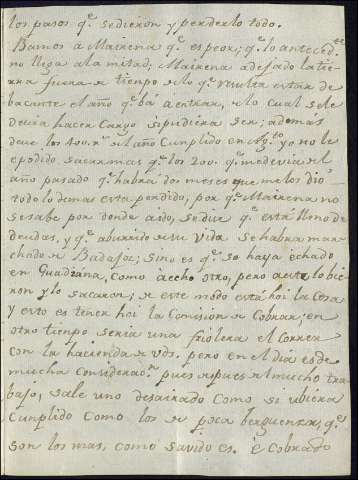 los pasos q.e se dieron y perderlo todo.
Bamos a Mairena q.e es peor; q.e lo anteced.te
no llega a la mitad; Mairena a dejado la tie-
rra fuera de tiempo de lo q.e resulta estar de
bacante el año q.e bá a entrar, de lo cual se le
devia hacer Cargo si pudiera ser; además
deve los 400 r.s del año Cumplido en Ag.to yo no le
e podido sacar mas q.e los 200. q.e me devia del
año pasado q.e habrá dos meses que me los dió
todo lo demas esta perdido, por q.e Mairena no
se sabe por donde a ido, se dice q.e está lleno de
deudas, y q.e aburrido de su vida se habra mar-
chado a Badajoz; sino es q.e se haya echado
en Guadiana, como á echo otro, pero a este lo bie-
ron y lo sacaron; de este modo está hoi la Cosa
y esto es tener hoi la Comision de Cobrar; en
otro tiempo seria una friolera el Correr
con la hacienda de Vds. pero en el dia es de
mucha considerac.n pues despues del mucho tra-
bajo, sale uno desairado como si ubiera
Cumplido como los de poca berguenza, q.e
son los mas, como savido es. e Cobrado